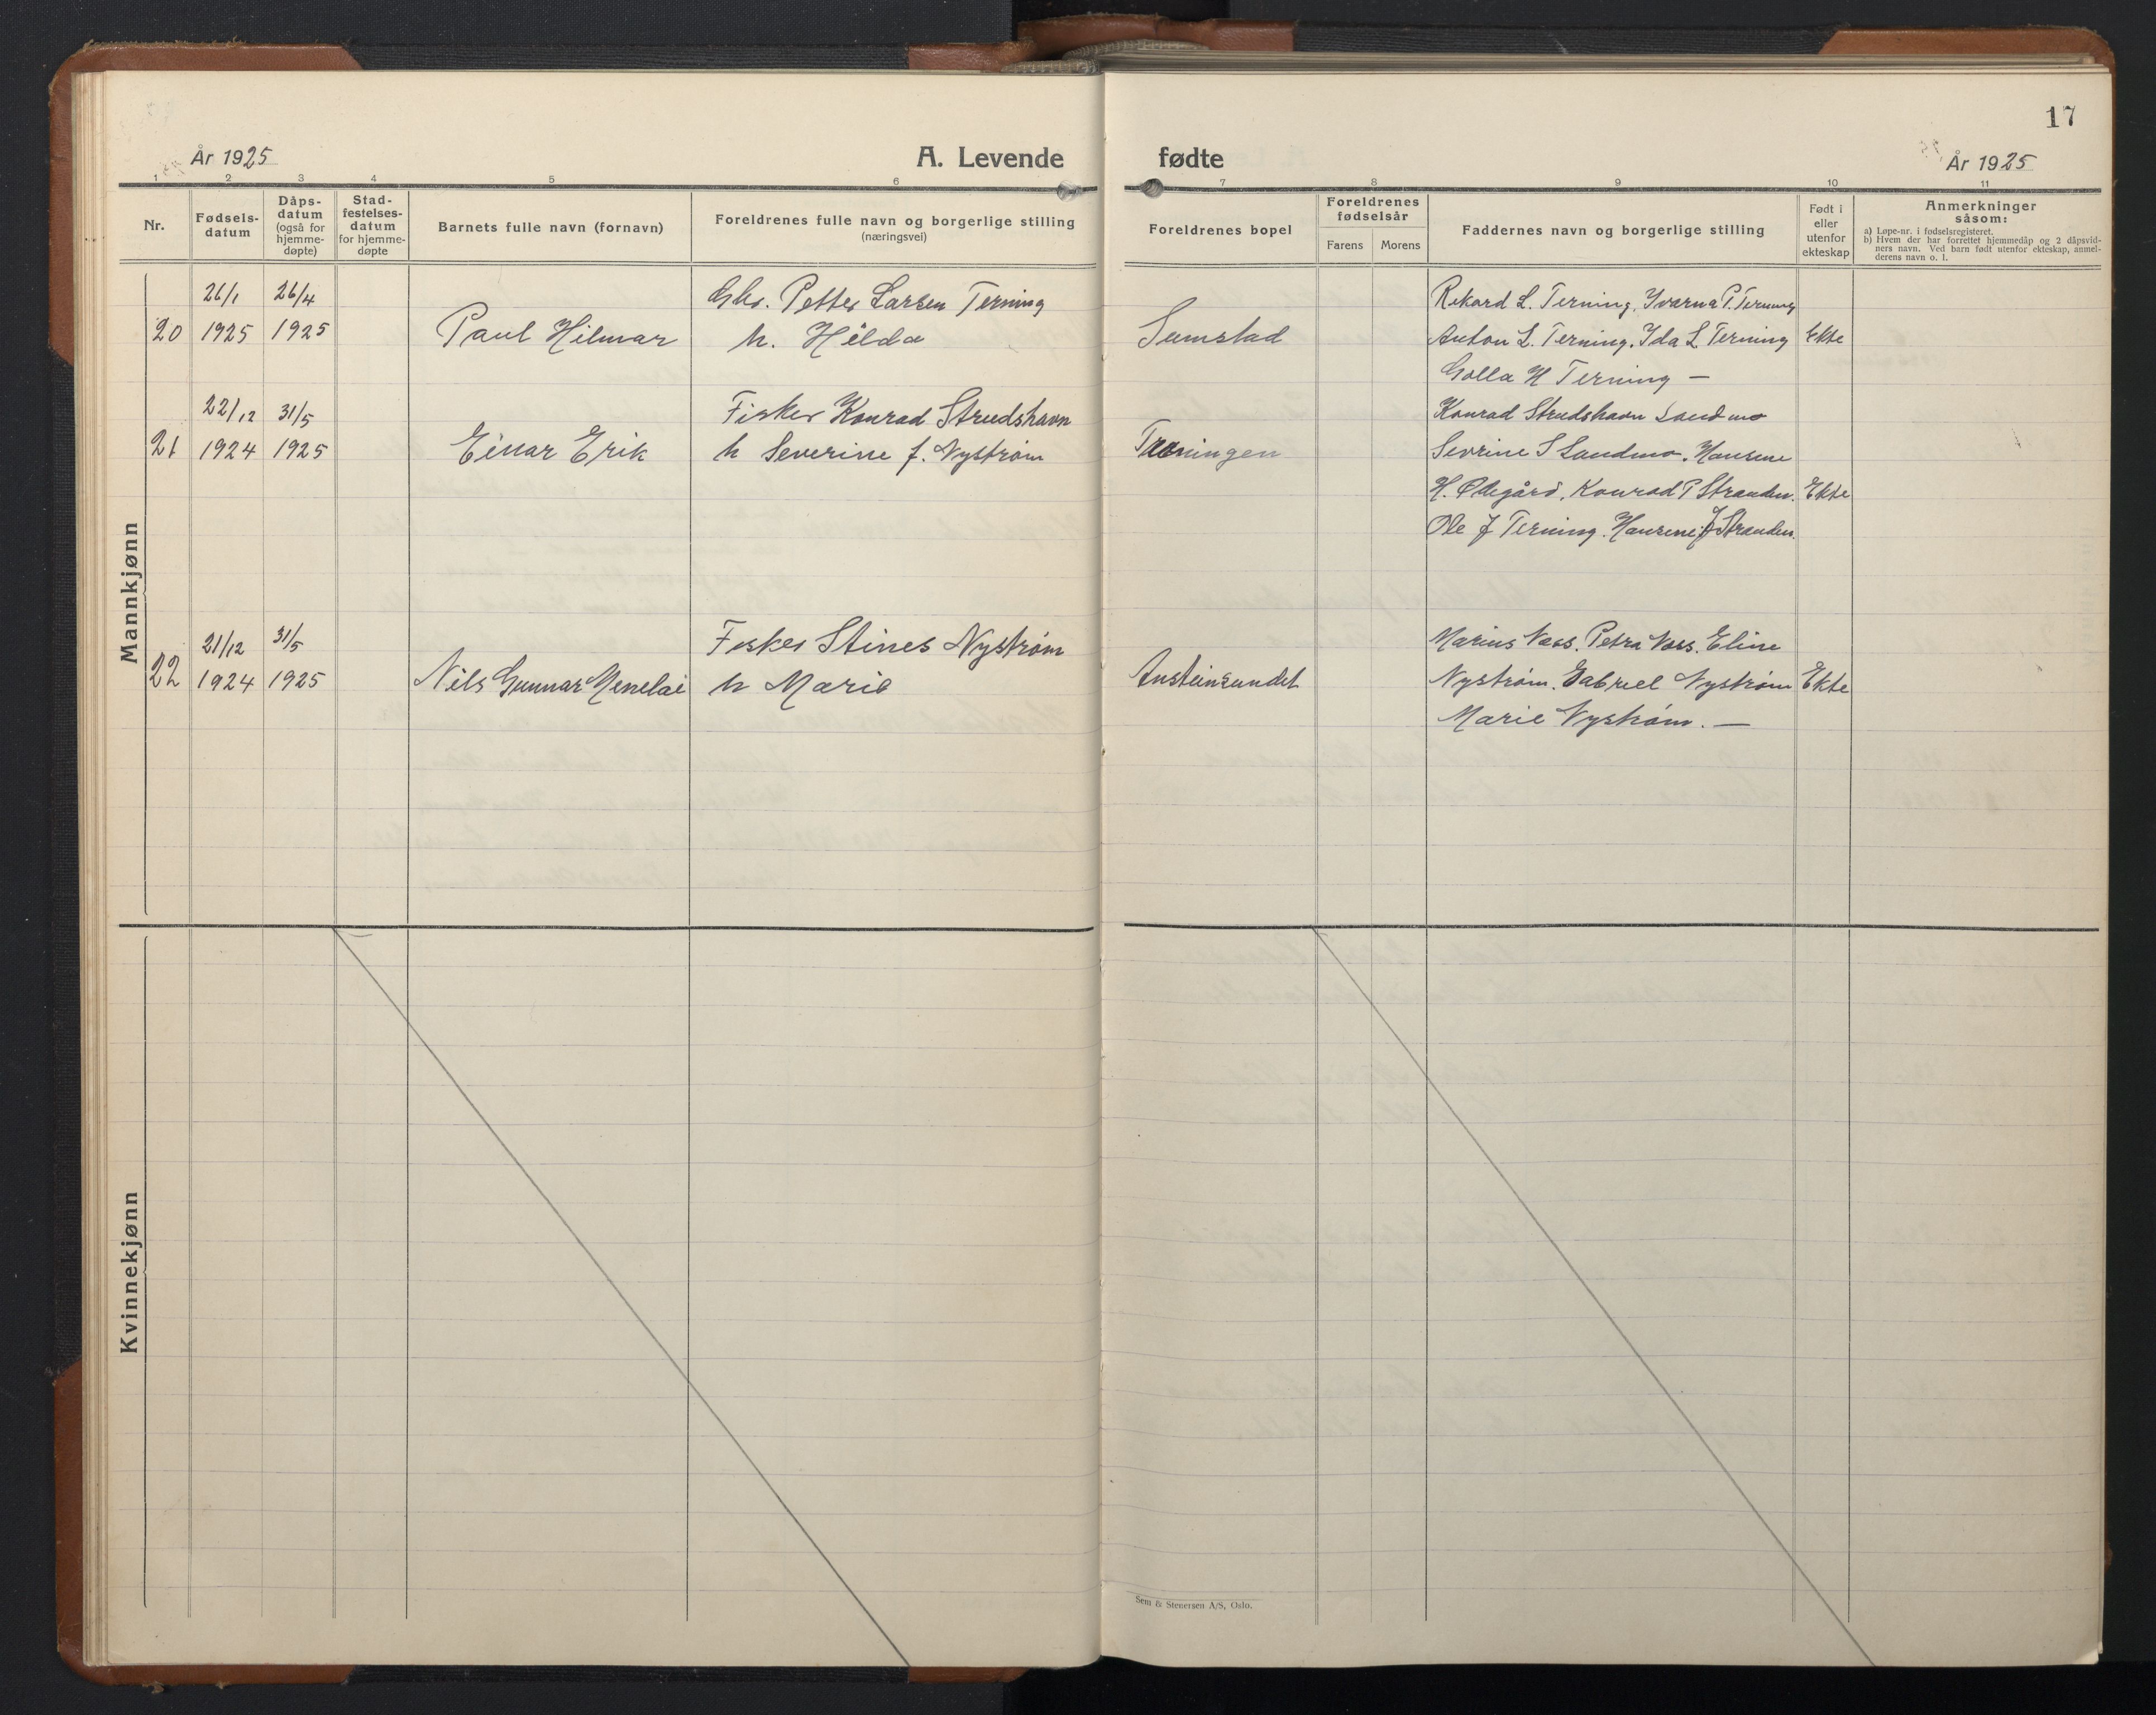 17
År 1925
A. Levende fødte
År 1925
1 2 3 4 5 6 7 8 9 10 11
Nr.
Fødsels-
datum
Dåps-
datum
(også for
hjemme-
døpte)
Stad-
festelses-
datum
for hjemme-
døpte
Barnets fulle navn (fornavn)
Foreldrenes fulle navn og borgerlige stilling
(næringsvei)
Foreldrenes bopel
Foreldrenes
fødselsår
Farens Morens
Faddernes navn og borgerlige stilling
Født i
eller
utenfor
ekteskap
Anmerkninger
såsom:
a) Løpe-nr. i fødselsregisteret.
b) Hvem der har forrettet hjemmedåp og 2 dåpsvid-
ners navn. Ved barn født utenfor ekteskap, anmel-
derens navn o. l.
Mannkjønn
26/1 26/4 Gbr. Petter Larsen Terning Rikard L. Terning, P. Terning
20 1925 1925 Paul Hilmar h. Hilda Sumstad Anton L. Terning. Ida L Terning Ekte
Golla H Terning —
22/12 31/5 Fisker Konrad Strudshavn Konrad Strudshavn Sandmo
21 1924 1925 Einar Erik h Severine f. Nystrøm Terningen Sevrine S Sandmo. Hansine
H. Ødegård. Konrad P Stranden. Ekte
Ole J Terning. Hansine J Stranden.
21/12 31/5 Fisker Stines Nystrøm Marius Vass. Petra Vass. Eline
22 1924 1925 Nils Gunnar Menelai h Marie Ansteinsundet Nystrøm. Gabriel Nystrøm Ekte
Marie Nystrøm. —
Kvinnekjønn
Sem & Stenersen A/S, Oslo.